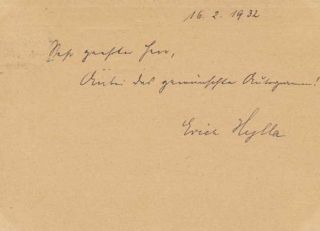 16. 2. 1932
Sehr geehrter Herr,
Anbei das gewünschte Autogramm!
Erich Hylla